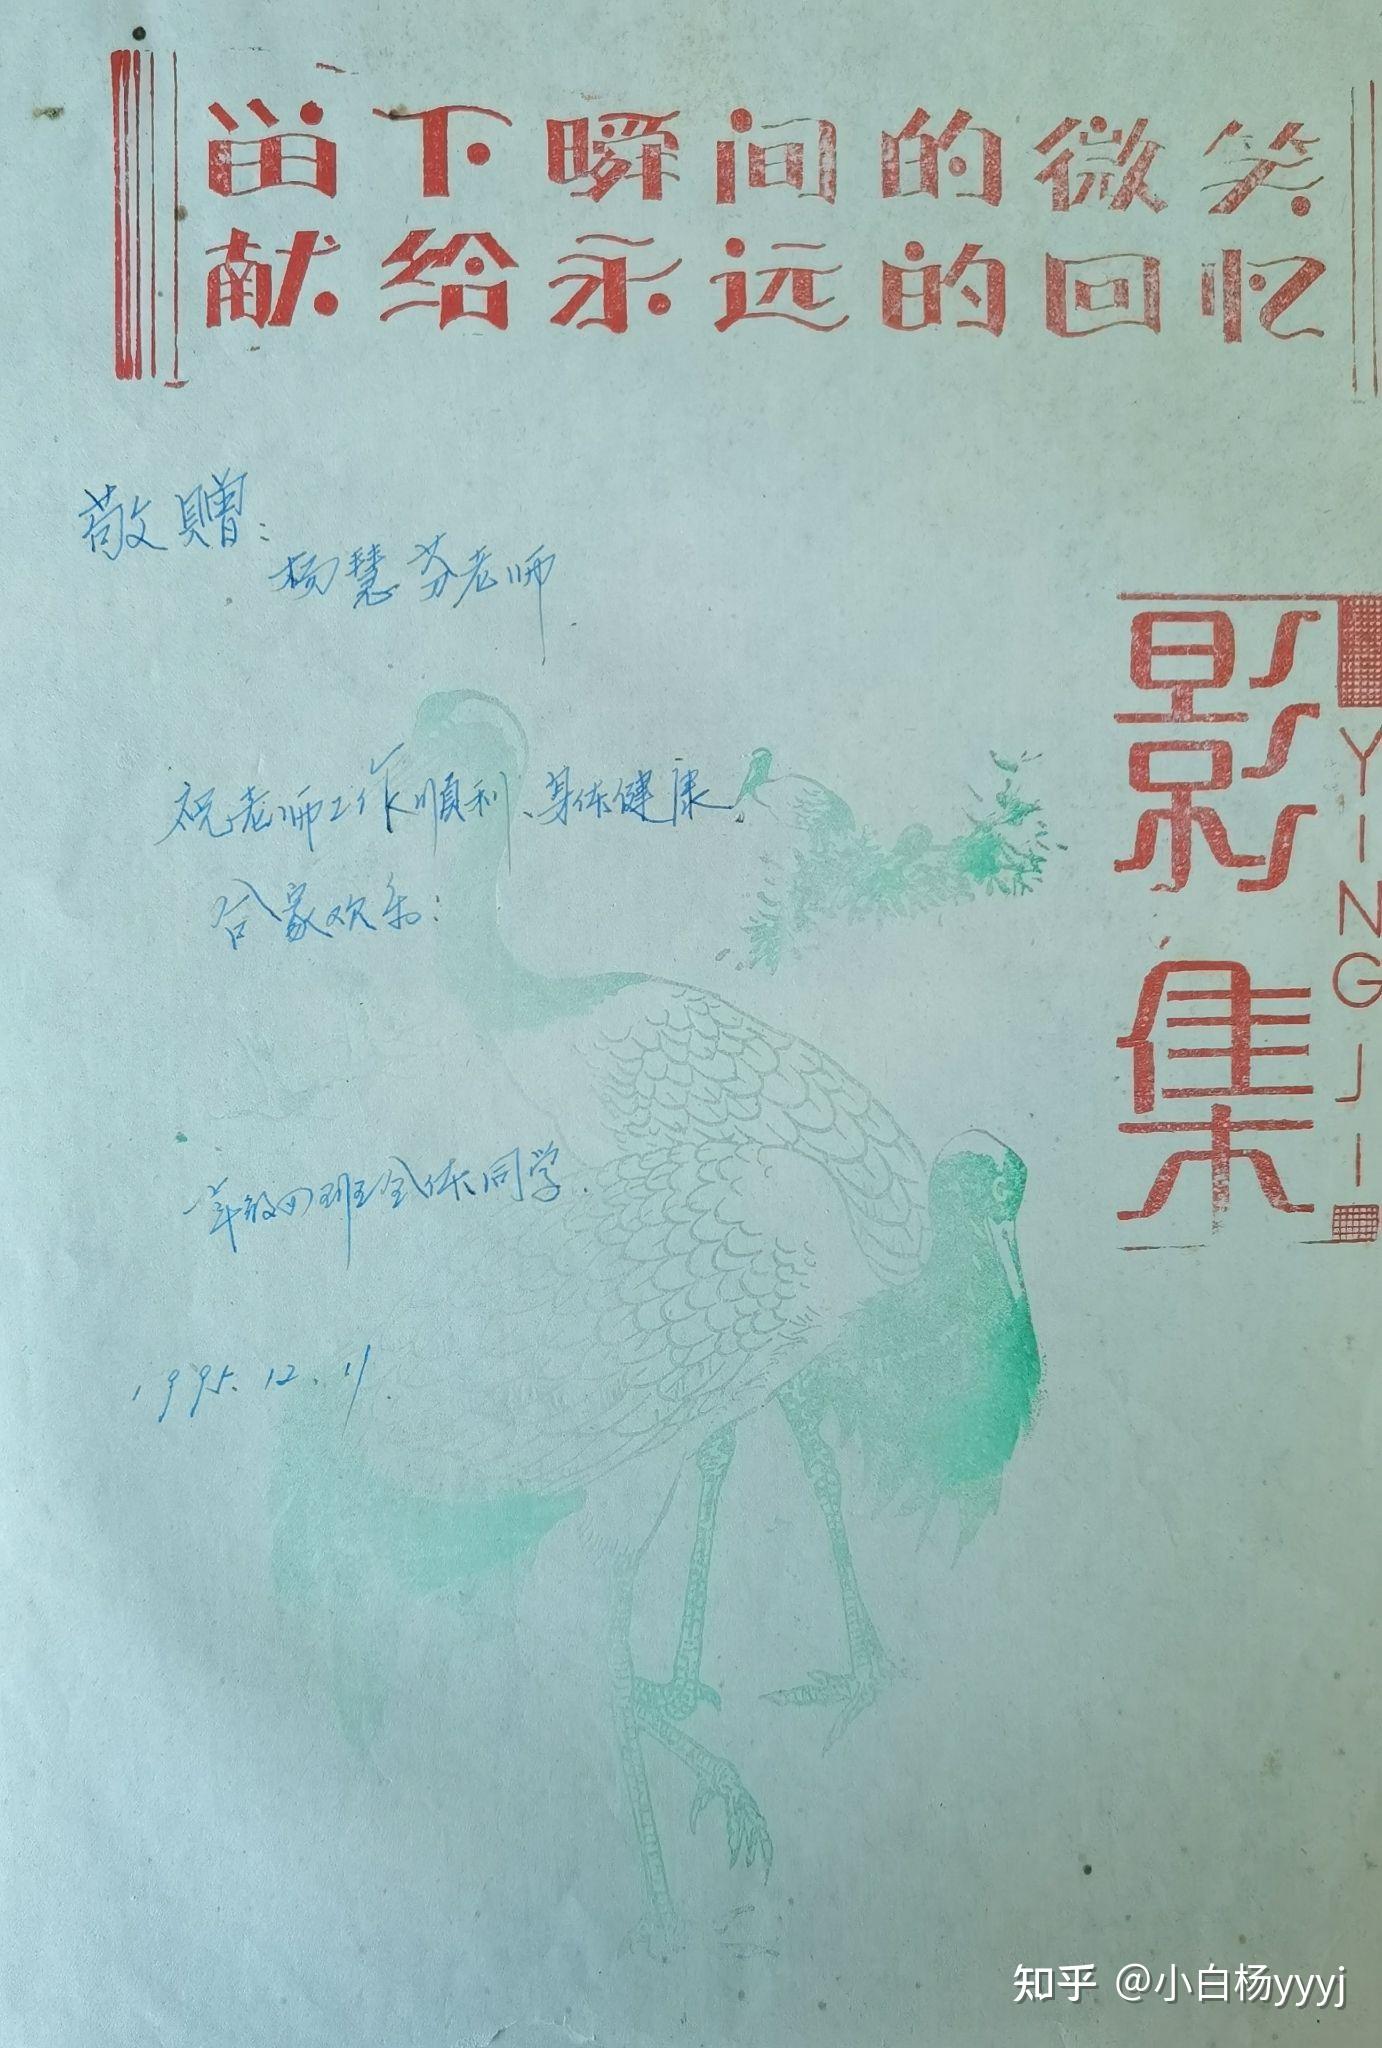 留下瞬间的微笑
献给永远的回忆
敬赠:
杨慧芬老师
祝老师工作順利、身体健康、
合家欢乐:
影集
YING JI
一年级四班全体同学.
1995.12.11.
知乎 @小白杨yyyj